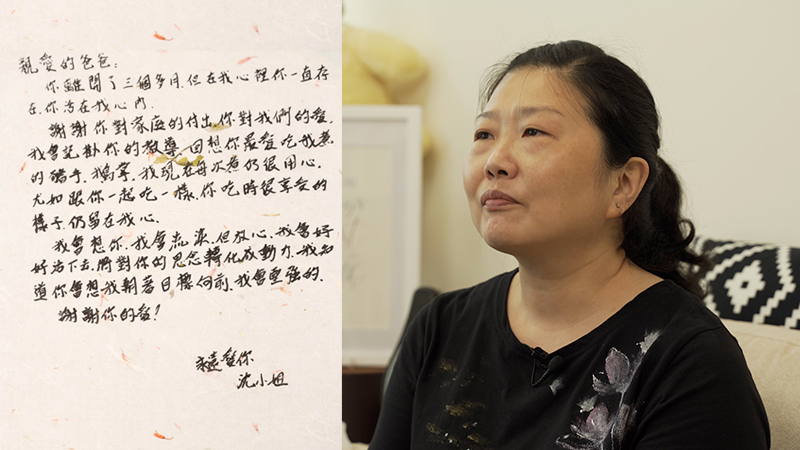 親愛的爸爸：
你離開了三個多月,但在我心裡你一直存
在,你活在我心內.
謝謝你對家庭的付出,你對我們的愛,
我會記掛你的教導,回想你最愛吃我煮
的豬手,鵝掌,我現在每次煮仍很用心,
尤如跟你一起吃一樣,你吃時很享受的
樣子,仍留在我心.
我會想你,我會流淚,但放心,我會好
好活下去,將對你的思念轉化動力,我知
道你會想我朝著目標向前,我會堅強的.
謝謝你的愛!
永遠愛你
沈小姐